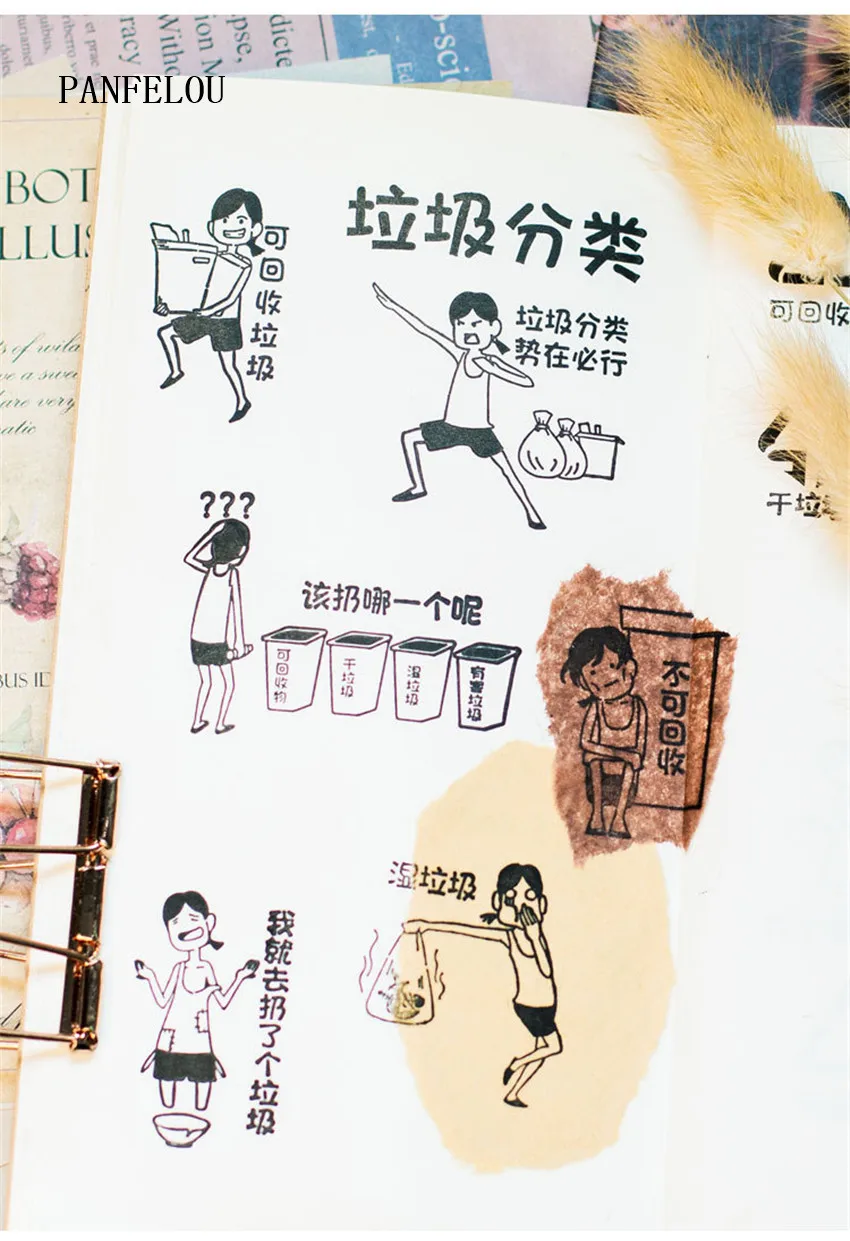 dicte
pse,
ion M
racy
Withc
o-sci
Ed
PANFELOU
BOT
LLUS
ts of wild
ve a swee
are very
atic
BUS ID
垃圾分类
可回收垃圾
垃圾分类
势在必行
可回收
干垃
???
该扔哪一个呢
可回收物
干垃圾
湿垃圾
有害垃圾
不可回收
湿垃圾
我就去扔了个垃圾